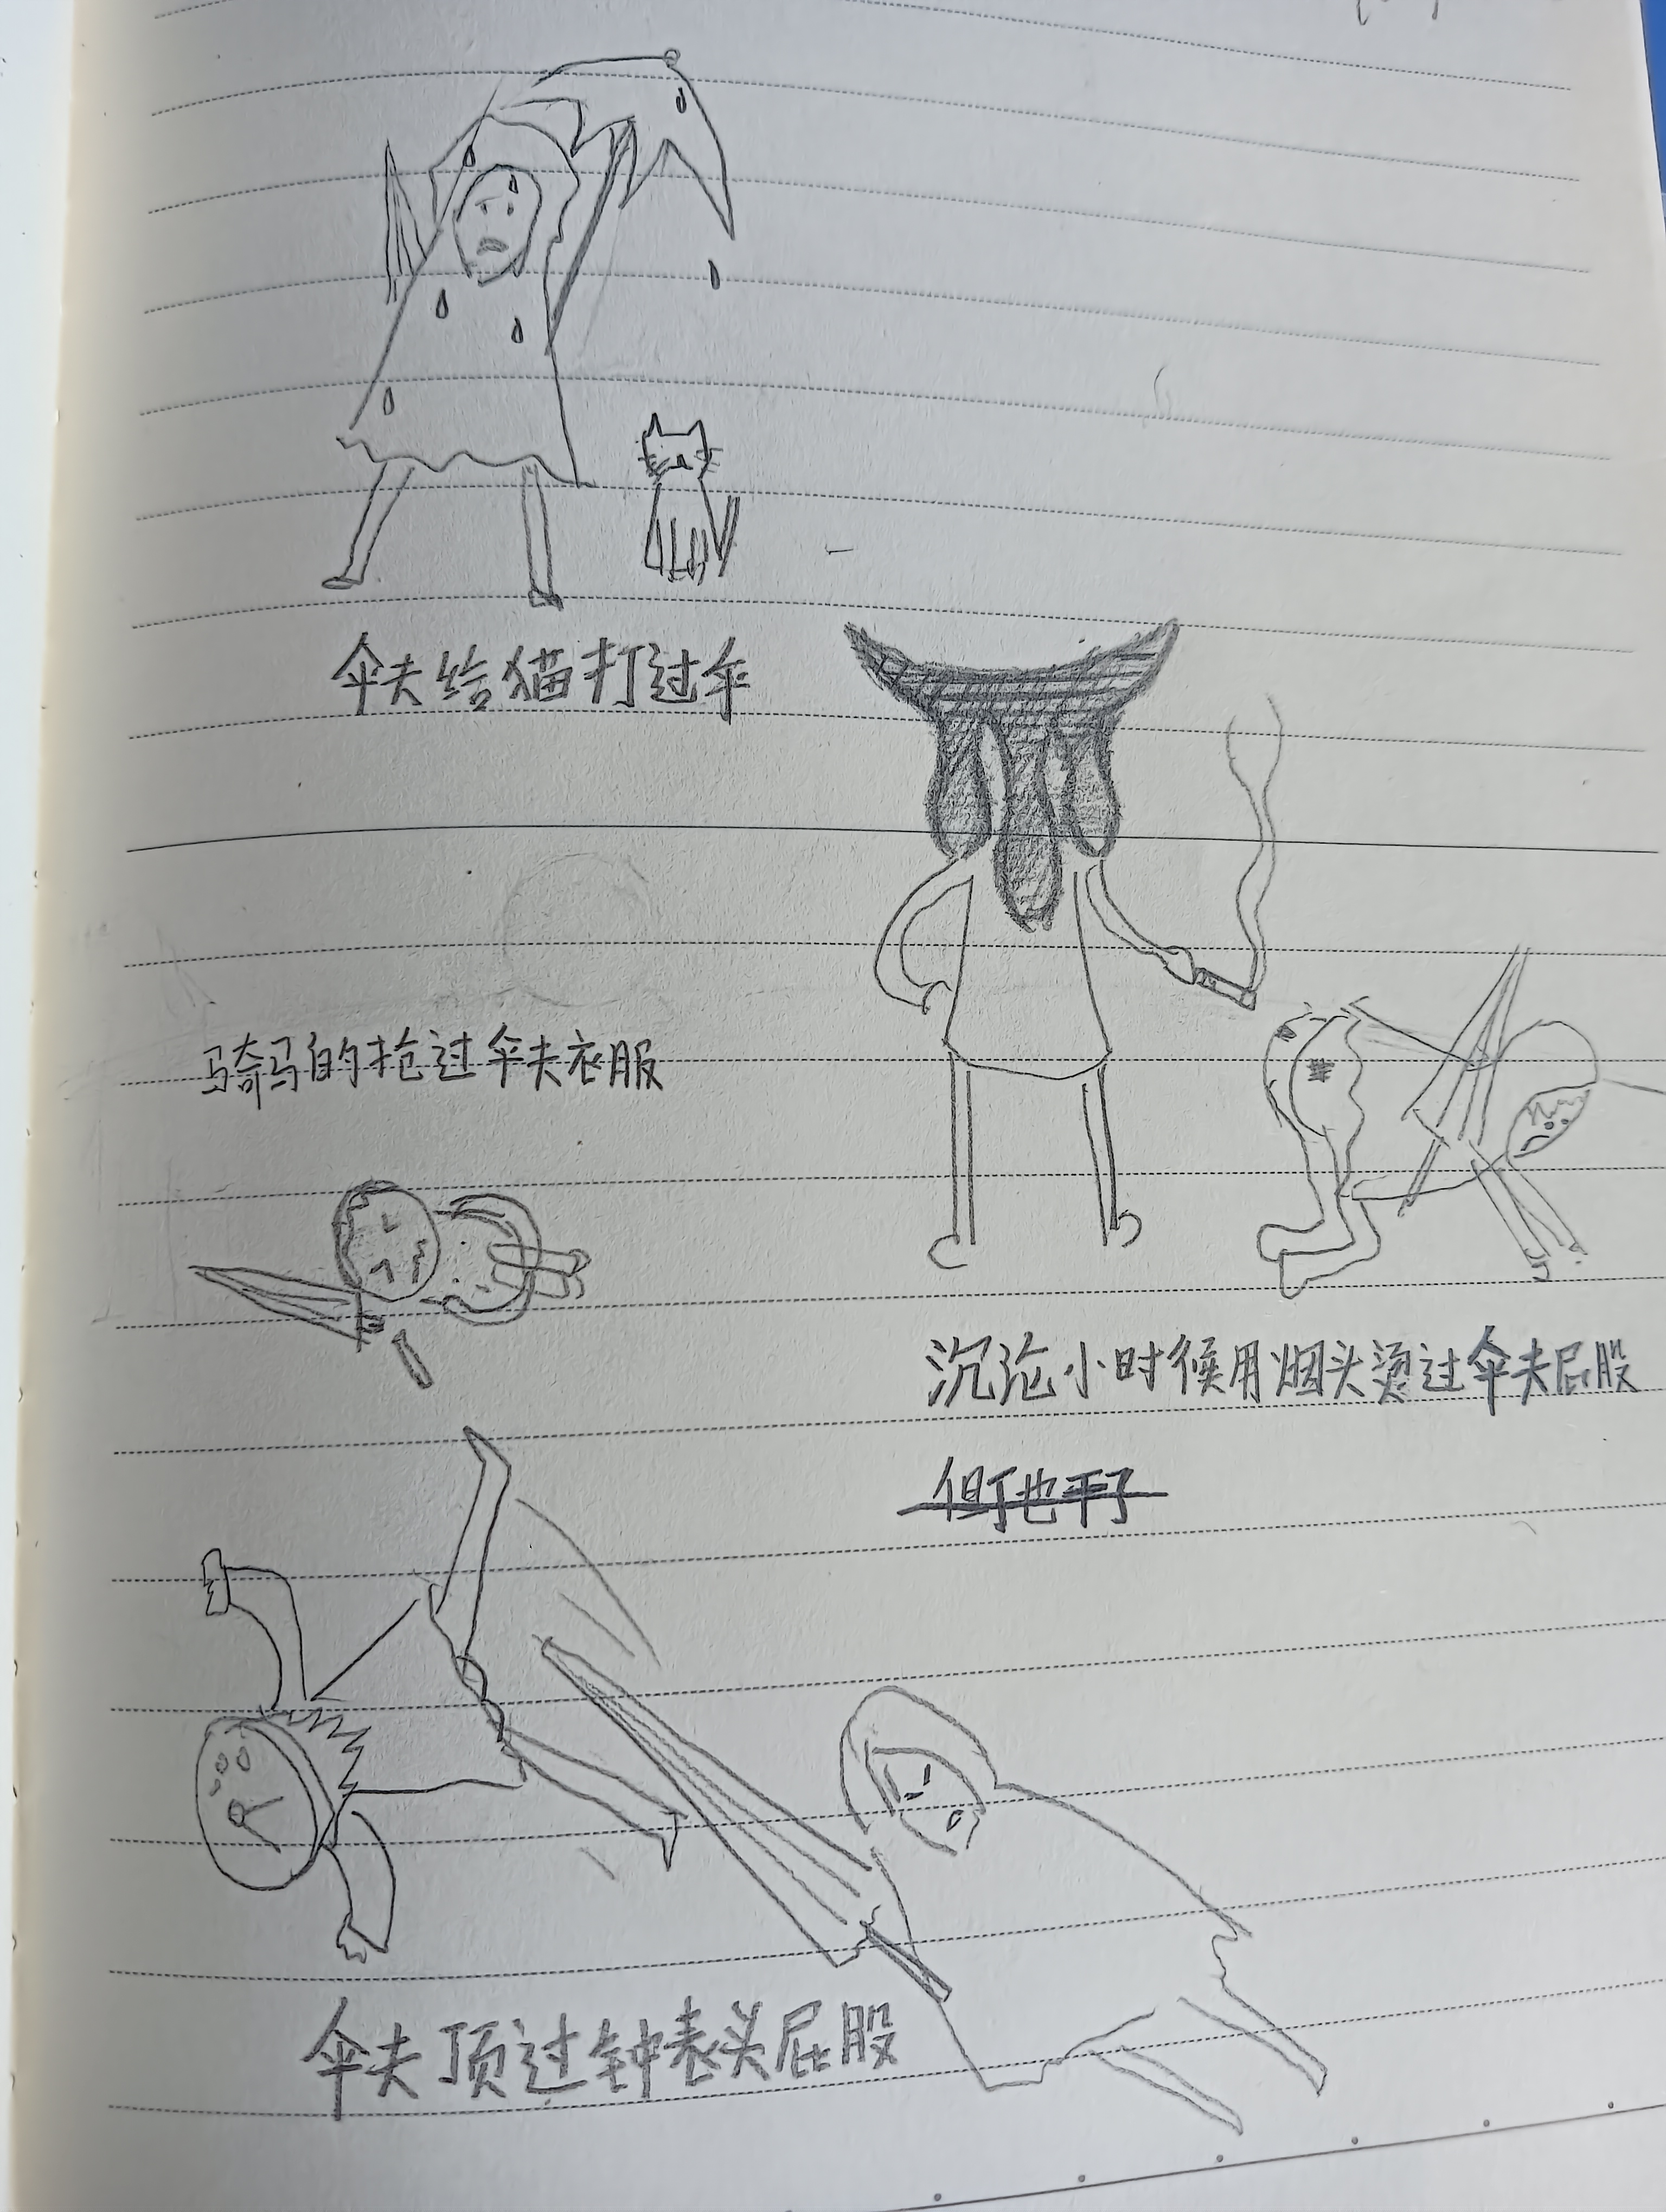 伞夫给猫打过伞
骑马的抢过伞夫衣服
沉沦小时候用烟头烫过伞夫屁股
伞夫顶过钟表头屁股